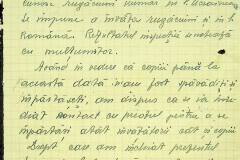 cunosc rugăciuni numai în Ucraineană
se impune a învăța rugăciuni și în l.
Română. Rezultatul inspecției urmează
cu mulțumitor.
Având în vedere că copiii până la
această dată n'au fost spovădiți și
împărtășiți, am dispus ca să ia ime-
diat contact cu preotul pentru a se
împărtăși atât învățătorii cât și copiii
Drept care am încheiat prezentul